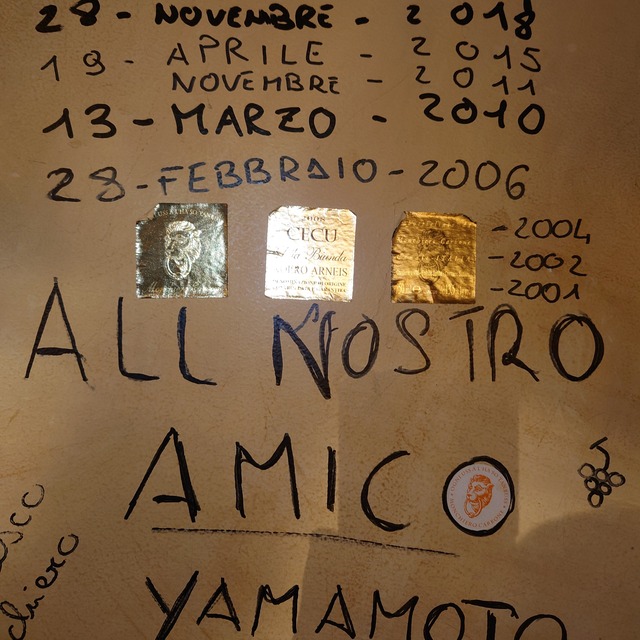 28 - NOVEMBRE - 2018
19 - APRILE - 2015
NOVEMBRE - 2011
13 - MARZO - 2010
28 - FEBBRAIO - 2006
CECU
la Biunda
ROERO ARNEIS
- 2004
- 2002
- 2001
ALL NOSTRO
AMICO
YAMAMOTO